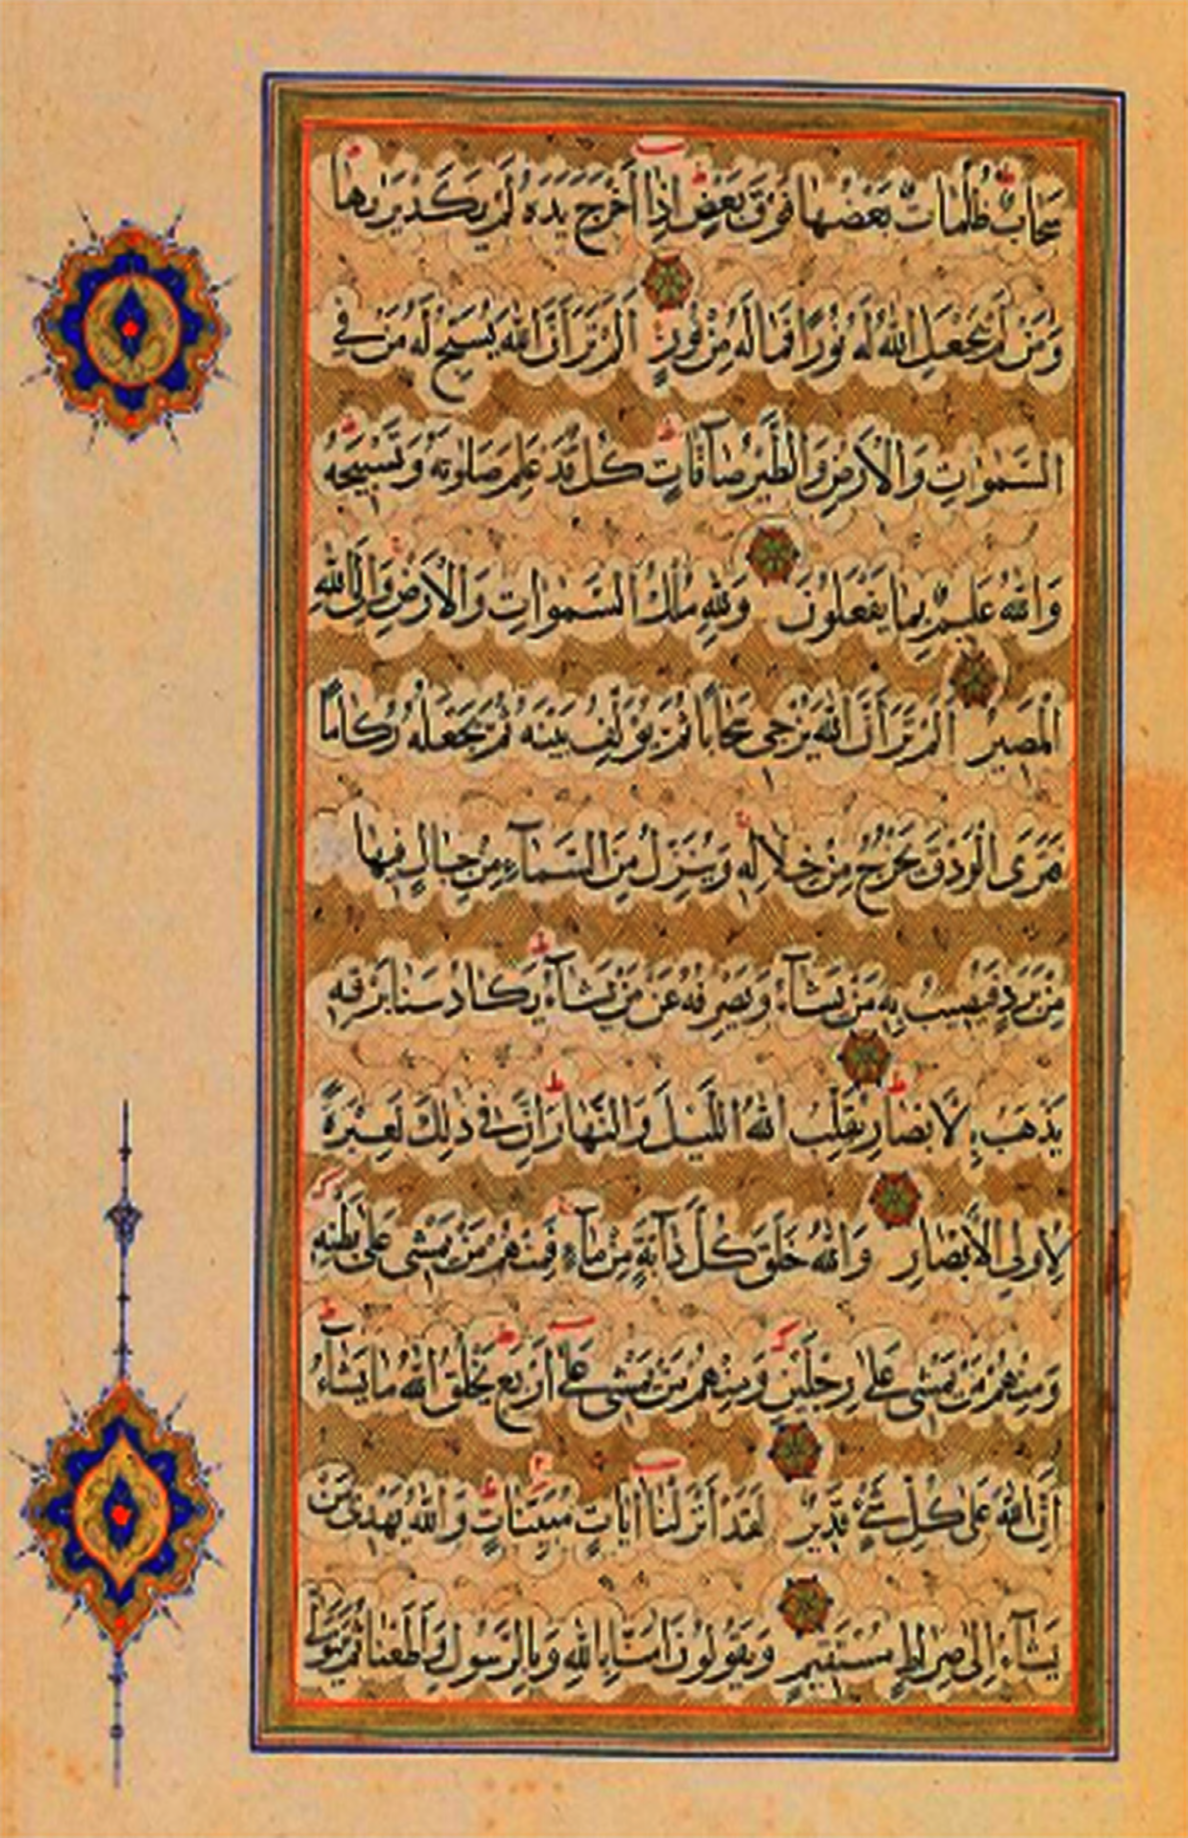 سَحَابٌ ظُلُمَاتٌ بَعْضُهَا فَوْقَ بَعْضٍ اِذَا اَخْرَجَ يَدَهُ لَمْ يَكَدْ يَرٰيهَا
وَمَنْ لَمْ يَجْعَلِ اللّٰهُ لَهُ نُورًا فَمَا لَهُ مِنْ نُورٍ اَلَمْ تَرَ اَنَّ اللّٰهَ يُسَبِّحُ لَهُ مَنْ فِى
السَّمٰوَاتِ وَالْاَرْضِ وَالطَّيْرُ صَآفَّاتٍ كُلٌّ قَدْ عَلِمَ صَلٰوتَهُ وَتَسْبِيحَهُ
وَاللّٰهُ عَلِيمٌ بِمَا يَفْعَلُونَ وَلِلّٰهِ مُلْكُ السَّمٰوَاتِ وَالْاَرْضِ وَاِلَى اللّٰهِ
الْمَصِيرُ اَلَمْ تَرَ اَنَّ اللّٰهَ يُزْجِى سَحَابًا ثُمَّ يُؤَلِّفُ بَيْنَهُ ثُمَّ يَجْعَلُهُ رُكَامًا
فَتَرَى الْوَدْقَ يَخْرُجُ مِنْ خِلَالِهِ وَيُنَزِّلُ مِنَ السَّمَآءِ مِنْ جِبَالٍ فِيهَا
مِنْ بَرَدٍ فَيُصِيبُ بِهِ مَنْ يَشَآءُ وَيَصْرِفُهُ عَنْ مَنْ يَشَآءُ يَكَادُ سَنَا بَرْقِهِ
يَذْهَبُ بِالْاَبْصَارِ يُقَلِّبُ اللّٰهُ اللَّيْلَ وَالنَّهَارَ اِنَّ فِى ذٰلِكَ لَعِبْرَةً
لِاُولِى الْاَبْصَارِ وَاللّٰهُ خَلَقَ كُلَّ دَآبَّةٍ مِنْ مَآءٍ فَمِنْهُمْ مَنْ يَمْشِى عَلٰى بَطْنِهِ
وَمِنْهُمْ مَنْ يَمْشِى عَلٰى رِجْلَيْنِ وَمِنْهُمْ مَنْ يَمْشِى عَلٰٓى اَرْبَعٍ يَخْلُقُ اللّٰهُ مَا يَشَآءُ
اِنَّ اللّٰهَ عَلٰى كُلِّ شَىْءٍ قَدِيرٌ لَقَدْ اَنْزَلْنَا اٰيَاتٍ مُبَيِّنَاتٍ وَاللّٰهُ يَهْدِى مَنْ
يَشَآءُ اِلٰى صِرَاطٍ مُسْتَقِيمٍ وَيَقُولُونَ اٰمَنَّا بِاللّٰهِ وَبِالرَّسُولِ وَاَطَعْنَا ثُمَّ يَتَوَلّٰى